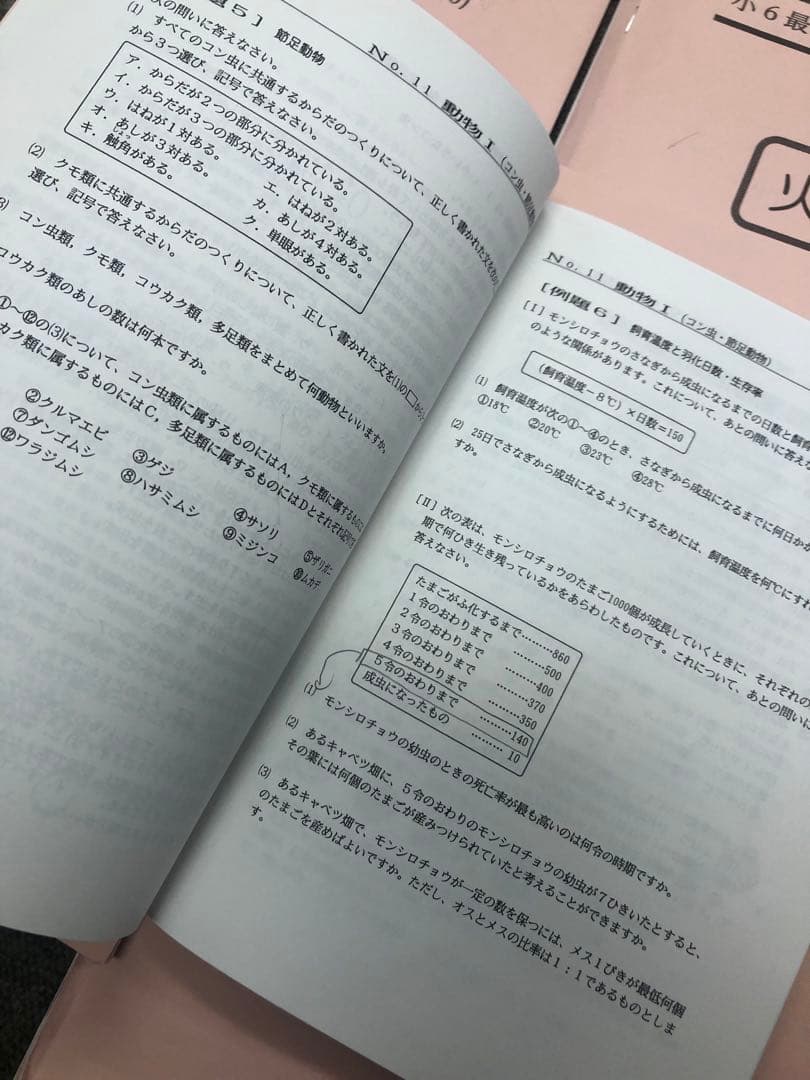 No. 11 動物Ⅰ (コン虫・節足
題5］ 節足動物
次の問いに答えなさい。
(1) すべてのコン虫に共通するからだのつくりについて、正しく書かれた文を
から3つ選び、記号で答えなさい。
ア．からだが2つの部分に分かれている。
イ．からだが3つの部分に分かれている。
ウ．はねが1対ある。 エ．はねが2対ある。
オ．あしが3対ある。 カ．あしが4対ある。
キ．触角がある。 ク．単眼がある。
しょっ
(2) クモ類に共通するからだのつくりについて、正しく書かれた文を(1)の□から
選び、記号で答えなさい。
3) コン虫類，クモ類，コウカク類，多足類をまとめて何動物といいますか。
コウカク類のあしの数は何本ですか。
①～⑫の(3)について、コン虫類に属するものにはA，クモ類に属するものに
カク類に属するものにはC，多足類に属するものにはDとそれぞれ記号で
②クルマエビ ③ゲジ ④サソリ ⑤ザリガニ
⑦ダンゴムシ ⑧ハサミムシ ⑨ミジンコ ⑩ムカデ
⑫ワラジムシ
No. 11 動物Ⅰ (コン虫・節足動物)
［例題6］ 飼育温度と羽化日数・生存率
［Ⅰ］モンシロチョウのさなぎから成虫になるまでの日数と飼育
のような関係があります。これについて、あとの問いに答えな
(飼育温度－8℃)×日数＝150
(1) 飼育温度が次の①～④のとき、さなぎから成虫になるまでに何日かか
①18℃ ②20℃ ③23℃ ④28℃
(2) 25日でさなぎから成虫になるようにするためには、飼育温度を何℃にすれ
すか。
［Ⅱ］次の表は、モンシロチョウのたまご1000個が成長していくときに、それぞれの
期で何びき生き残っているかをあらわしたものです。これについて、あとの問いに
答えなさい。
たまごがふ化するまで………860
1令のおわりまで ………500
2令のおわりまで ………400
3令のおわりまで ………370
4令のおわりまで ………350
5令のおわりまで ………140
成虫になったもの ……… 10
(1) モンシロチョウの幼虫のときの死亡率が最も高いのは何令の時期ですか。
(2) あるキャベツ畑に、5令のおわりのモンシロチョウの幼虫が7ひきいたとすると、
その葉には何個のたまごが産みつけられていたと考えることができますか。
(3) あるキャベツ畑で、モンシロチョウが一定の数を保つには、メス1ぴきが最低何個
のたまごを産めばよいですか。ただし、オスとメスの比率は1：1であるものとしま
す。
小6最